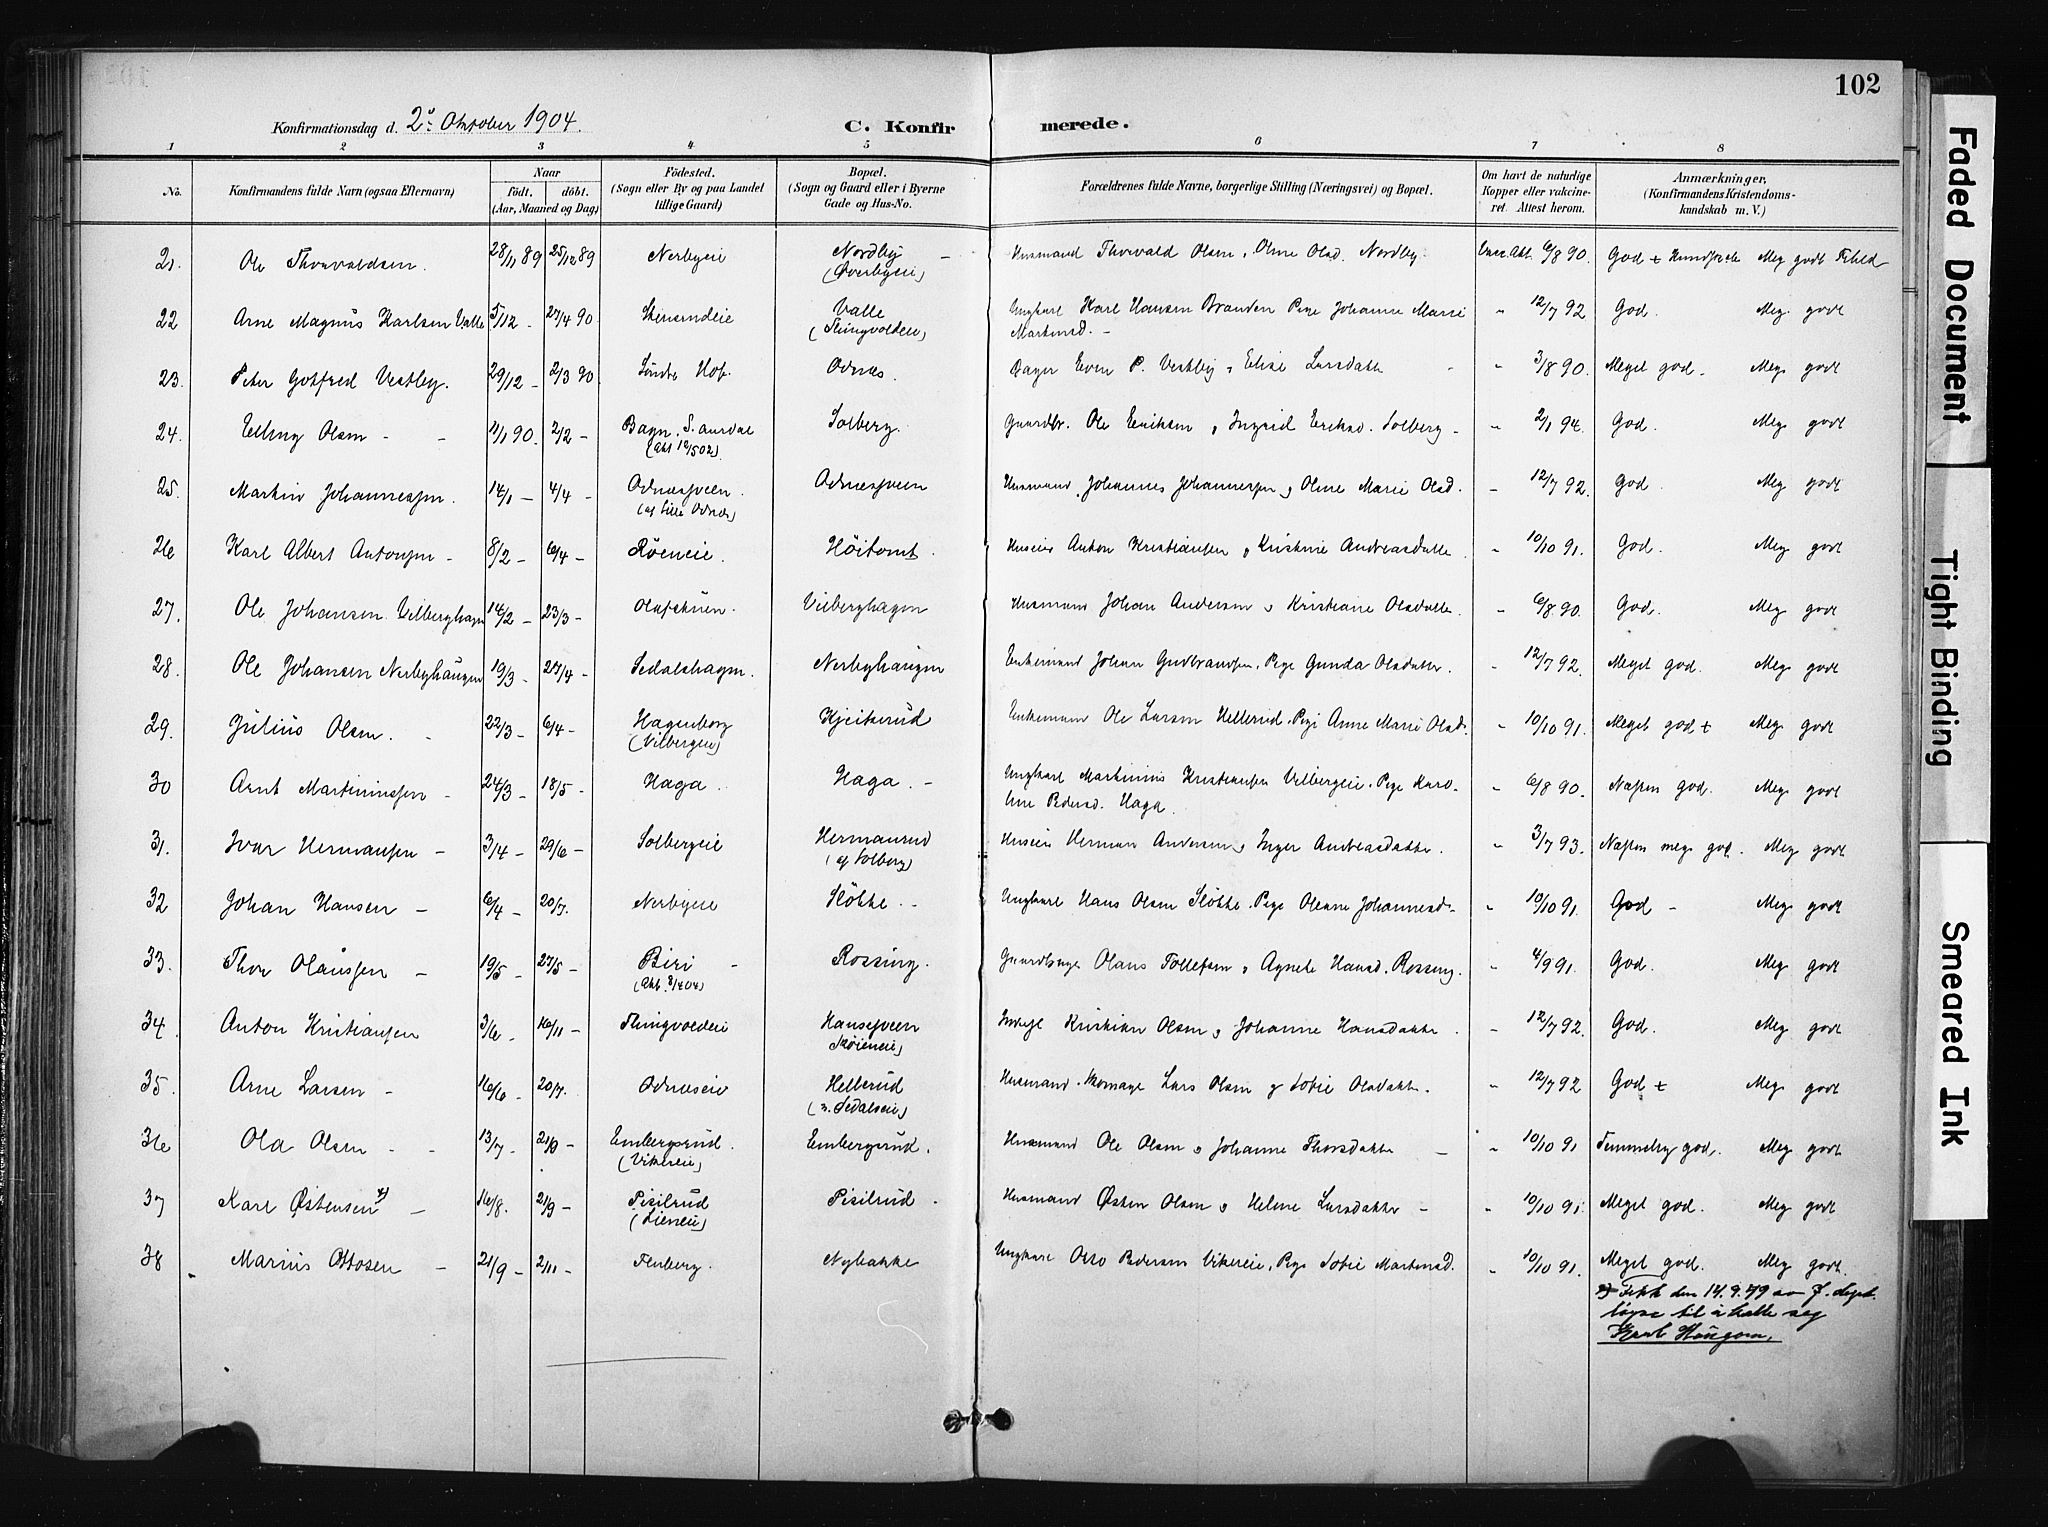 102
Konfirmationsdag d. 2. Oktober 1904.
C. Konfirmerede.
1 2 3 4 5 6 7 8
No. Konfirmandens fulde Navn (ogsaa Efternavn) Naar født, døbt. (Aar, Maaned og Dag) Fødested. (Sogn eller By og paa Landet tillige Gaard) Bopæl. (Sogn og Gaard eller i Byerne Gade og Hus-No. Forældrenes fulde Navne, borgerlige Stilling (Næringsvei) og Bopæl. Om havt de naturlige Kopper eller vakcineret. Attest herom. Anmærkninger, (Konfirmandens Kristendomskundskab m. V.)
21. Ole Thorvaldsen. 28/11 89 25/12 89 Nerbyeie Nordby (Øverbyeie) Husmand Thorvald Olsen, Oline Olsd. Nordby. 6/8 90. God + Meg godt Forhold
22 Arne Magnus Karlsen Valle 5/12 - 27/4 90 Valle (Thingvoldeie) Ungkarl Karl Hansen Branden Pige Johanne Marie
Martinsd. - " 12/7 92 God. Meg. godt
23. Peter Gotfred Vestby. 29/12 - 2/3 90 Søndre Hof. Odnæs. Even P. Vestby, Elise Larsdatter " 3/8 90. Meget god. Meg godt
24. Erling Olsen - 11/1 90. 2/2 - Bagn, S. Aurdal Solberg. Gaardbr. Ole Eriksen, Ingrid Eriksd. Solberg - " 2/1 94. God. Meg. godt
25. Martin Johannessen. 14/1 - 4/4 - Odnæsveen (af Lille Odnæs) Odnæsveen Husmand Johannes Johannessen, Oline Marie Olsd. - 12/7 92. God. Meg godt
26 Karl Albert Antonsen - 8/2 - 6/4 - Røeneie. Høitomt. Anton Kristiansen, Kristine Andreasdatter. " 10/10 91. God. Meg godt
27. Ole Johansen Vilberghagen 14/2 - 23/3 - Vilberghagen Husmand Johan Andersen, Kristiane Olsdatter. " 6/8 90. God. Meg godt
28. Ole Johansen Nerbyhaugen 19/3 - 27/4 - Sedalshagen. Nerbyhaugen Enkemand Johan Gudbrandsen, Pige Gunda Olsdatter. " 12/7 92. Meget god. Meg godt
29. Julius Olsen. - 22/3 - 6/4 - Hagenborg (Vilbergeie) Kjeiserud Enkemand Ole Larsen Hellerud, Pige Anne Marie Olsd. " 10/10 91. Meget god + Meg godt
30 Arnt Martinussen - 24/3 - 18/5 - Haga. Haga. - Ungkarl Martinius Kristiansen Vilbergeie, Pige Karo-
line Pedersd. Haga. " 6/8 90. Næsten god. Meg godt
31. Ivar Hermansen - 3/4 - 29/6 - Solbergeie Hermanrud (af Solberg) Herman Andersen, Inger Andreasdatter. " 3/7 93. Næsten meget god. Meg godt
32 Johan Hansen - 6/4 - 20/7. Nerbyeie Sløtte. - Ungkarl Hans Olsen Sløtte, Pige Oleane Johannesd- " 10/10 91. God - Meg godt
33. Thor Olaussen - 19/5 - 27/5 - Biri - (Att. 8/4 04) Rossing. Olaus Tollefsen, Agnete Hansd. Rossing. " 4/9 91. God. Meg. godt
34. Anton Kristiansen 3/6 - 16/11 - Thingvoldeie Hansesveen Køieneie) Inderst Kristian Olsen, Johanne Hansdatter. " 12/7 92. God. Meg. godt
35. Arne Larsen - 16/6 - 20/7. Odnæseie Hellerud (n. Sedalseie) Husmand. Skomager Lars Olsen og Sofie Olsdatter. " 12/7 92 God + Meg godt
36 Ola Olsen - - 13/7 - 21/9 - Embergsrud. (Vikereie) Embergsrud. Husmand Ole Olsen, Johanne Thorsdatter - " 10/10 91 Temmelig god. Meg godt
37 Karl Østensen x) - 16/8. 21/9 - Pisilrud (Lieneie) Pisilrud. Husmand Østen Olsen, Helene Larsdatter - " 10/10 91. Meget god. Meg godt
38 Marius Ottosen - 21/9 - 2/11 - Fluberg. Nybakke Ungkarl Otto Pedersen Vikereie, Pige Sofie Martinsd. " 10/10 91. Meget god. Meg godt.
x) Fikk den 14.9.49 av J. dept.
løyve til å kalle seg
Karl Haugom.
Faded Document
Tight Binding
Smeared Ink